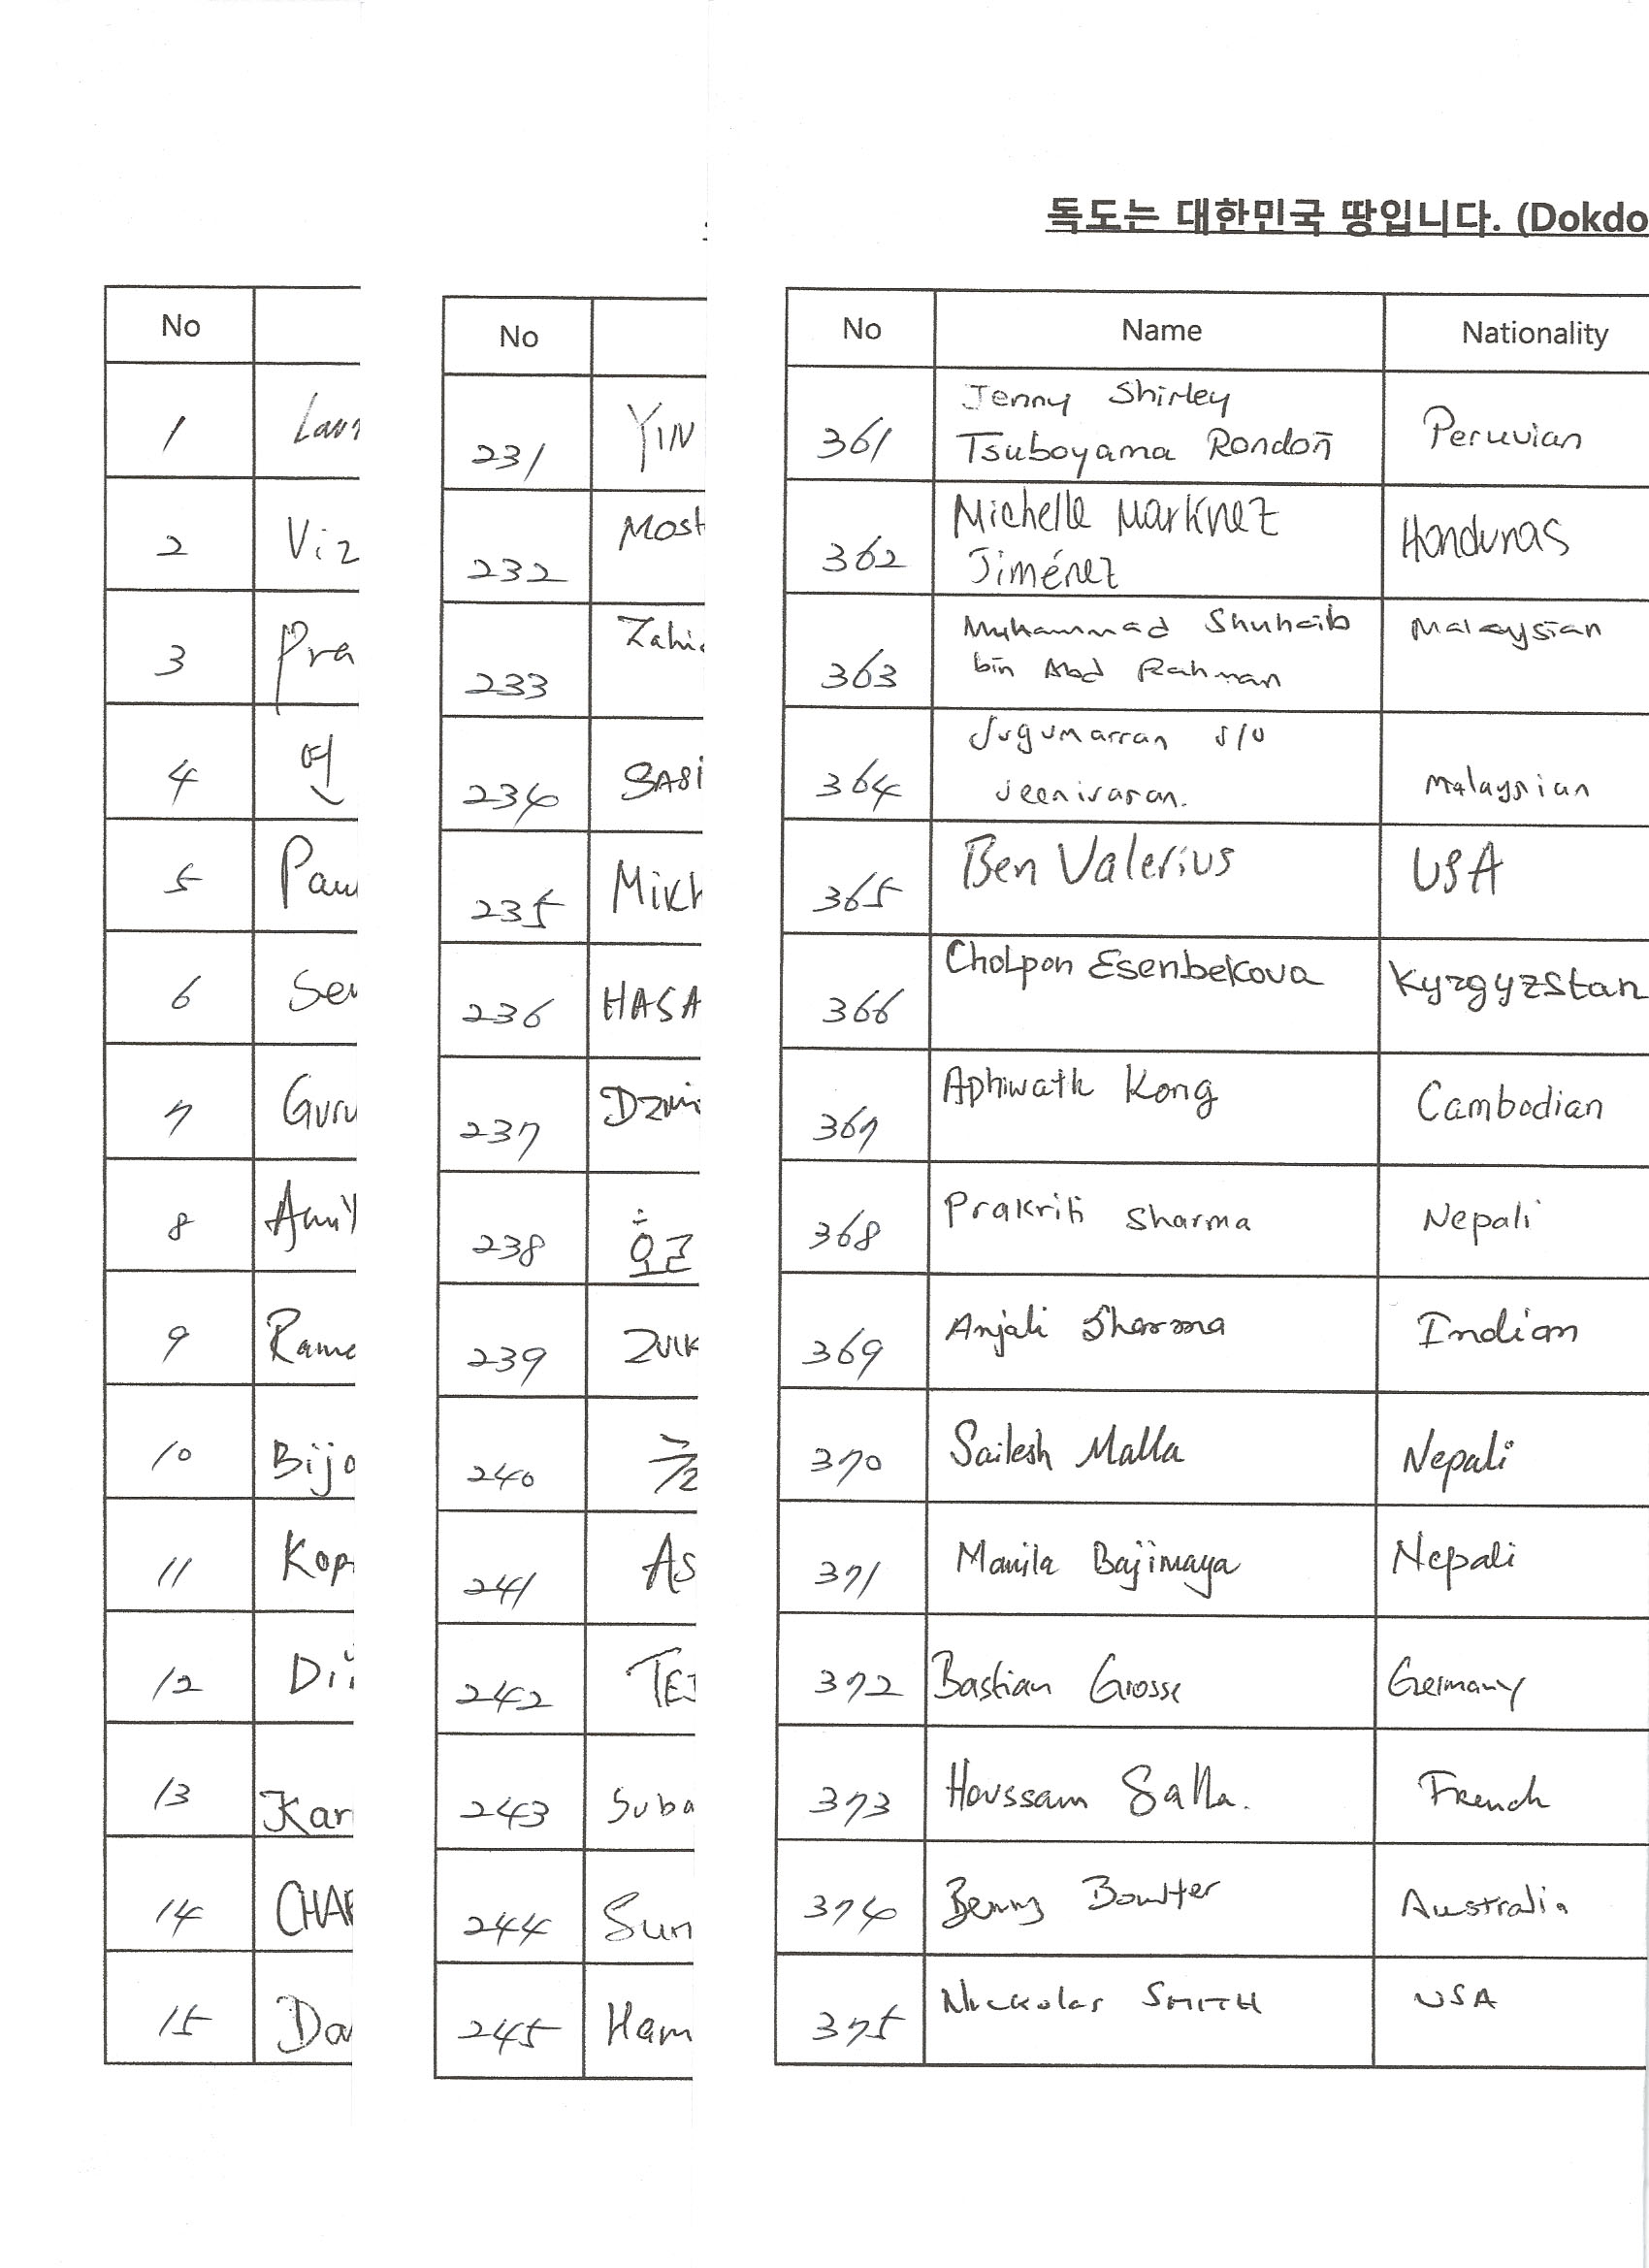 독도는 대한민국 땅입니다. (Dokdo
No
1 Laur
2 Viz
3 Pra
4
5 Pau
6 Ser
7 Guru
8
9 Rame
10 Bijo
11 Kop
12
13 Kar
14 CHAR
15 Da
No
231 YIN
232 Most
233 Zahi
234 SASI
235 Mikh
236 HASA
237
238
239 Zulk
240
241 As
242 TE
243 Suba
244 Sun
245 Ham
No Name Nationality
361 Jenny Shirley
Tsuboyama Rondon Peruvian
362 Michelle Martinez
Jiménez Honduras
363 Muhammad Shuhaib Malaysian
bin Abd Rahman
364 Jugumarran s/o
Malaysian
365 Ben Valerius USA
366 Cholpon Esenbekova Kyrgyzstan
367 Aphiwath Kong Cambodian
368 Prakriti Sharma Nepali
369 Anjali Sharma Indian
370 Sailesh Malla Nepali
371 Manila Bajimaya Nepali
372 Bastian Grosse Germany
373 Houssam Salla. French
374 Benny Australia
375 Nickolas SMITH USA